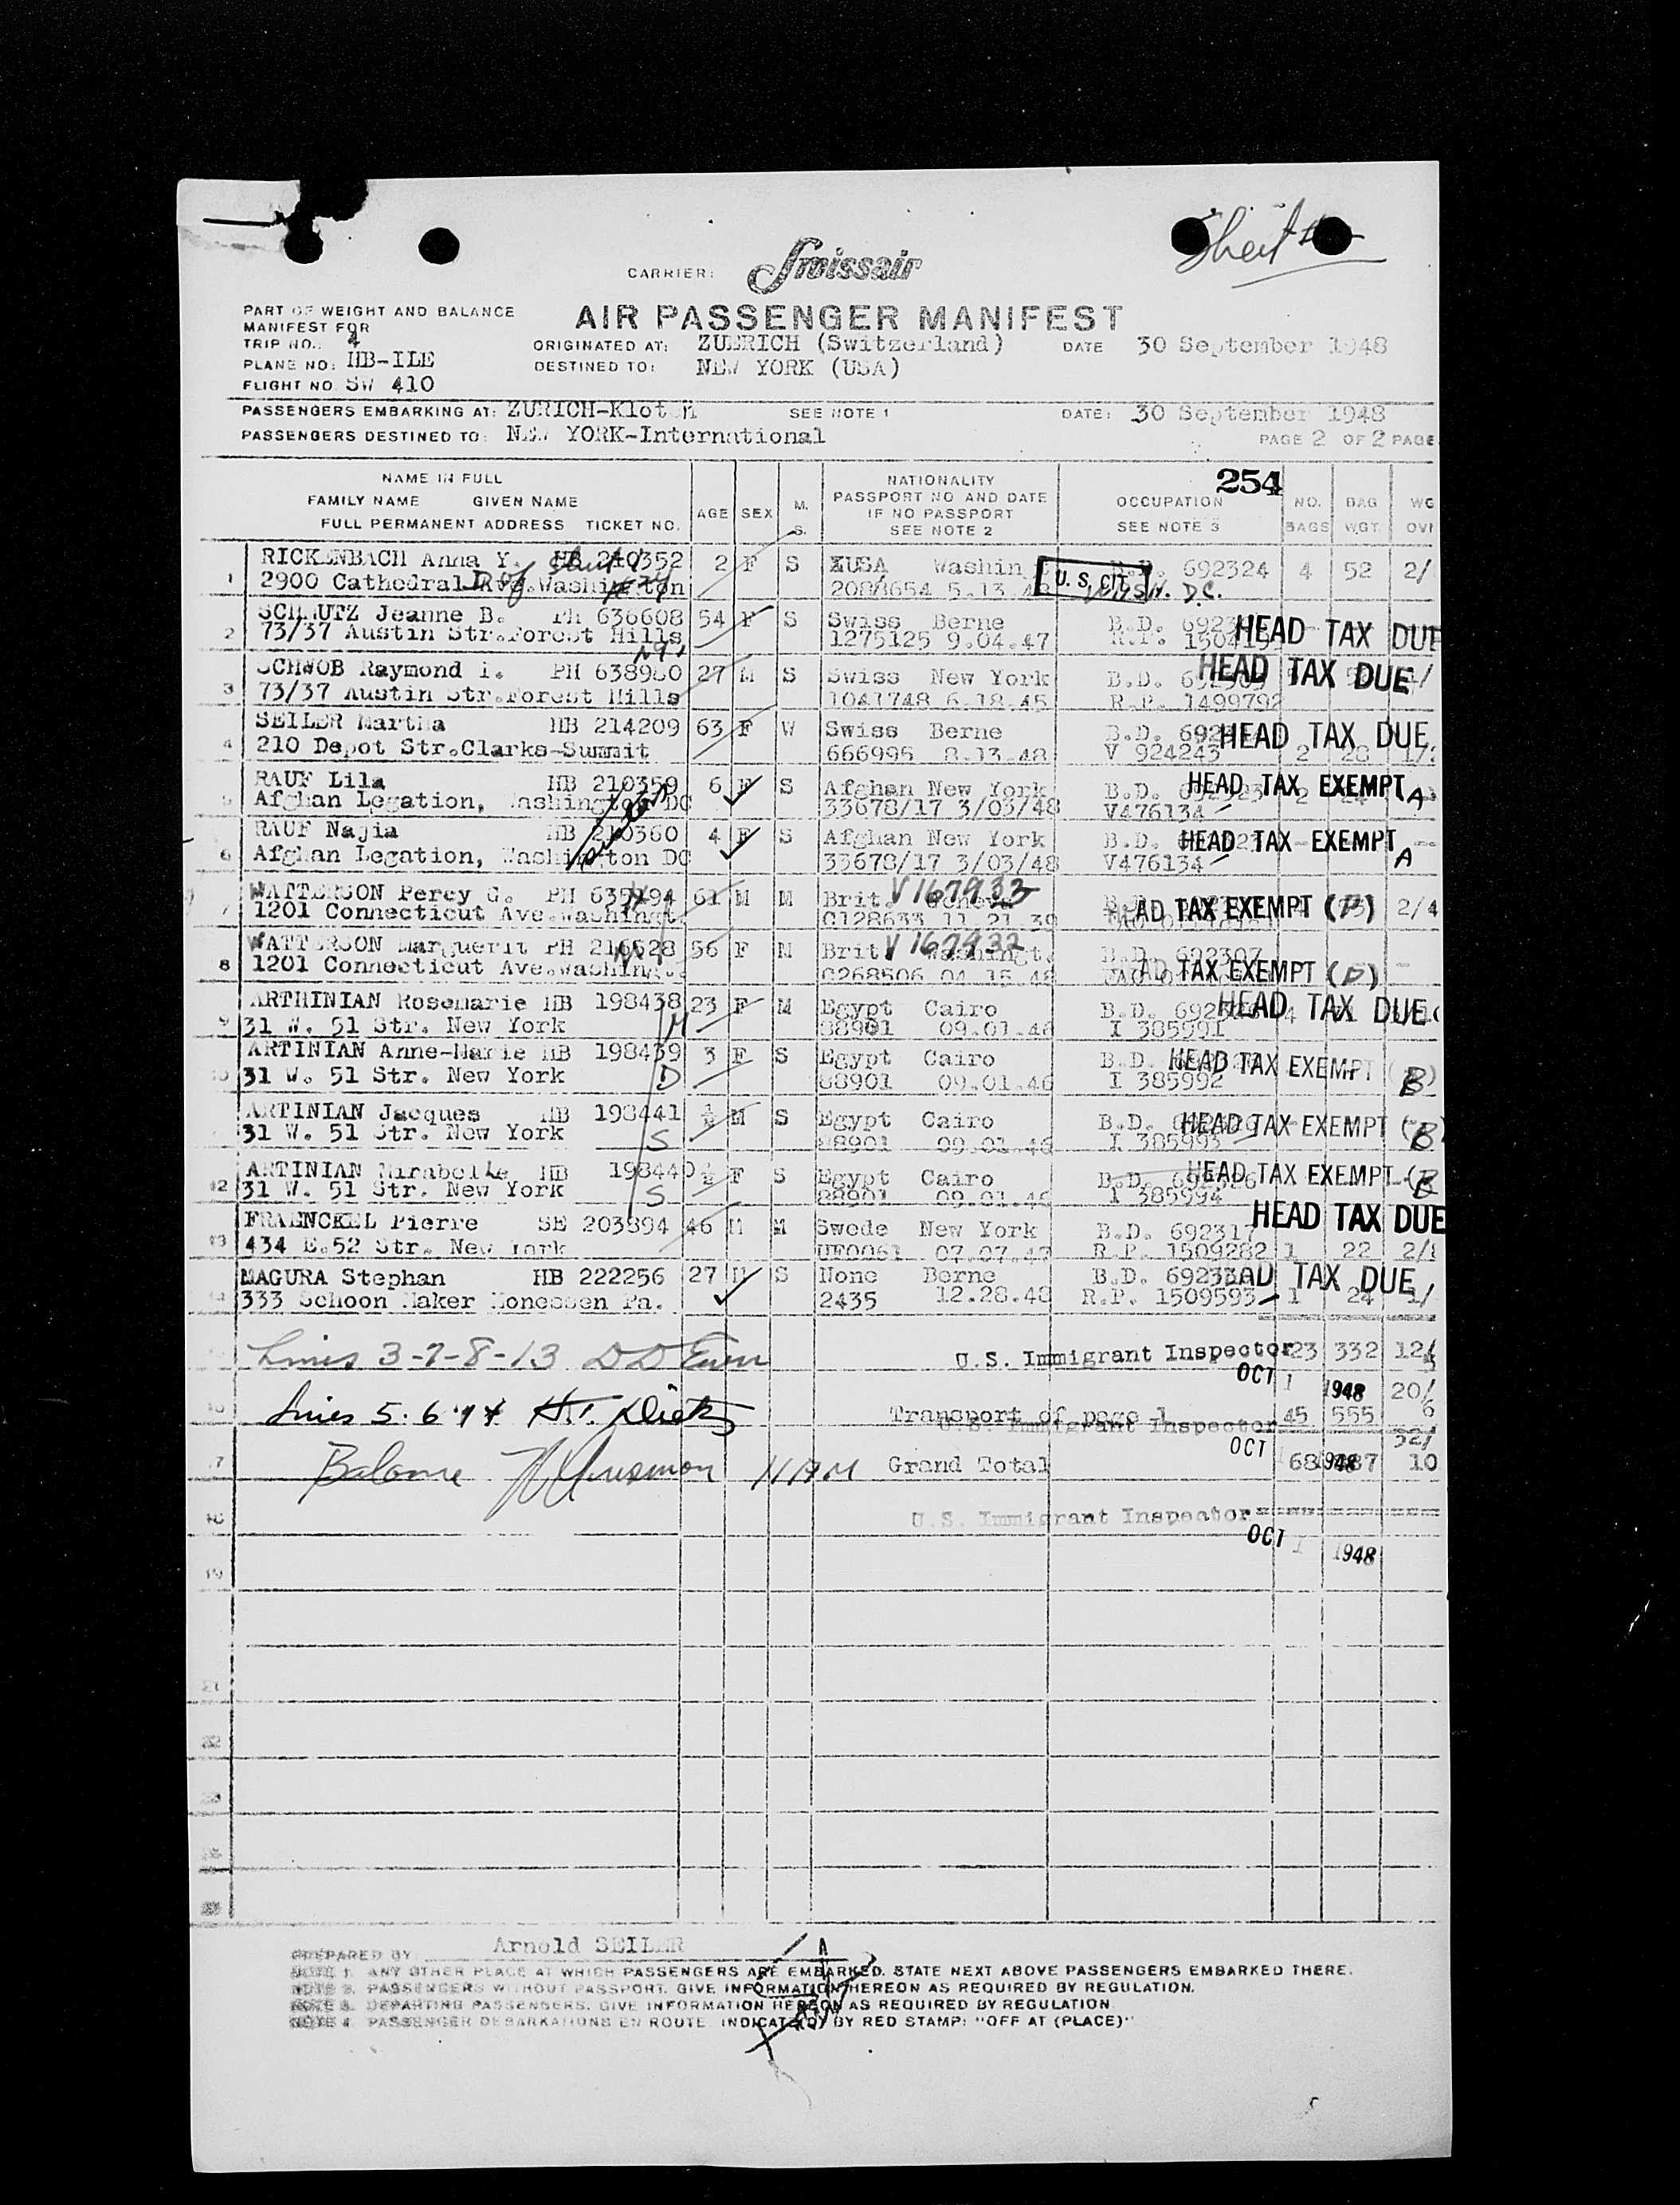 Sheet
CARRIER: Swissair
PART OF WEIGHT AND BALANCE
MANIFEST FOR
AIR PASSENGER MANIFEST
TRIP NO.: 4
ORIGINATED AT: ZUERICH (Switzerland) DATE 30 September 1948
PLANE NO: HB-ILE
DESTINED TO: NEW YORK (USA)
FLIGHT NO. SW 410
PASSENGERS EMBARKING AT: ZURICH-Kloten SEE NOTE 1 DATE: 30 September 1948
PASSENGERS DESTINED TO: NEW YORK-International
PAGE 2 OF 2 PAGE
254
NAME IN FULL
FAMILY NAME GIVEN NAME
FULL PERMANENT ADDRESS TICKET NO.
AGE SEX M. S.
NATIONALITY
PASSPORT NO AND DATE
IF NO PASSPORT
SEE NOTE 2
OCCUPATION
SEE NOTE 3
NO. BAGS
BAG WGT.
1 RICKENBACH Anna Y. HB 210352 2 F S USA Washin 692324 4 52 2/
2900 Cathedral Ave.Washington 2088654 5.13.48 U. S. CIT. WASH. D.C.
2 SCHMUTZ Jeanne B. PH 636608 54 F S Swiss Berne B.D. HEAD TAX DUE
73/37 Austin Str.Forest Hills NY 1275125 9.04.47 R.P.
3 SCHWOB Raymond PH 27 M S Swiss New York B.D. HEAD TAX DUE
73/37 Austin Str.Forest Hills 1041748 6.18.45 R.P. 1499792
4 SEILER Martha HB 214209 63 F W Swiss Berne B.D. HEAD TAX DUE
210 Depot Str.Clarks-Summit 666995 8.13.48 V 924243 2 28
5 RAUF Lila HB 210359 6 F S Afghan New York B.D. HEAD TAX EXEMPT A
Afghan Legation, Washington DC 33678/17 3/03/48 V476134
6 RAUF Najia HB 210360 4 F S Afghan New York B.D. HEAD TAX EXEMPT A
Afghan Legation, Washington DC 33678/17 3/03/48 V476134
7 WATTERSON Percy G. PH 61 M M Brit. Geneva V167933 AD TAX EXEMPT 2/4
1201 Connecticut Ave.Washingt. C128633 11.21.39
8 WATTERSON Marguerit PH 216528 56 F M Brit. Washingt. V167932 B.D. 692307
1201 Connecticut Ave.Washingt. C268506 04.15.48 AD TAX EXEMPT
9 ARTHINIAN Rosemarie HB 198438 23 F M Egypt Cairo B.D. HEAD TAX DUE
31 W. 51 Str. New York M 88901 09.01.46 I 385991
10 ARTINIAN Anne-Marie HB 198439 3 F S Egypt Cairo B.D. HEAD TAX EXEMPT B
31 W. 51 Str. New York D 88901 09.01.46 I 385992
ARTINIAN Jacques HB 198441 ½ M S Egypt Cairo B.D. HEAD TAX EXEMPT B
31 W. 51 Str. New York S 88901 09.01.46 I 385993
12 ARTINIAN Mirabelle HB 198440 ½ F S Egypt Cairo B.D. HEAD TAX EXEMPT B
31 W. 51 Str. New York S 88901 09.01.46 I 385994
13 FRAENCKEL Pierre SE 203894 46 M M Swede New York B.D. 692317 HEAD TAX DUE
434 E.52 Str. New York UF0061 07.07.47 R.P. 1509282 1 22
MAGURA Stephan HB 222256 27 M S None Berne B.D. AD TAX DUE
333 Schoon Maker Monessen Pa. 2435 12.28.48 R.P. 1509593 1 24
Lines 3-7-8-13 U.S. Immigrant Inspector 23 332
OCT 1 1948
Lines 5.6.14 Transport of page 1 45 555
U.S. Immigrant Inspector
OCT 1948
Balance Grand Total 68
U.S. Immigrant Inspector
OCT 1 1948
PREPARED BY Arnold SEILER
NOTE 1. ANY OTHER PLACE AT WHICH PASSENGERS ARE EMBARKED. STATE NEXT ABOVE PASSENGERS EMBARKED THERE.
NOTE 2. PASSENGERS WITHOUT PASSPORT. GIVE INFORMATION HEREON AS REQUIRED BY REGULATION.
NOTE 3. DEPARTING PASSENGERS. GIVE INFORMATION HEREON AS REQUIRED BY REGULATION
NOTE 4. PASSENGER DEBARKATIONS EN ROUTE INDICATED BY RED STAMP: "OFF AT (PLACE)"